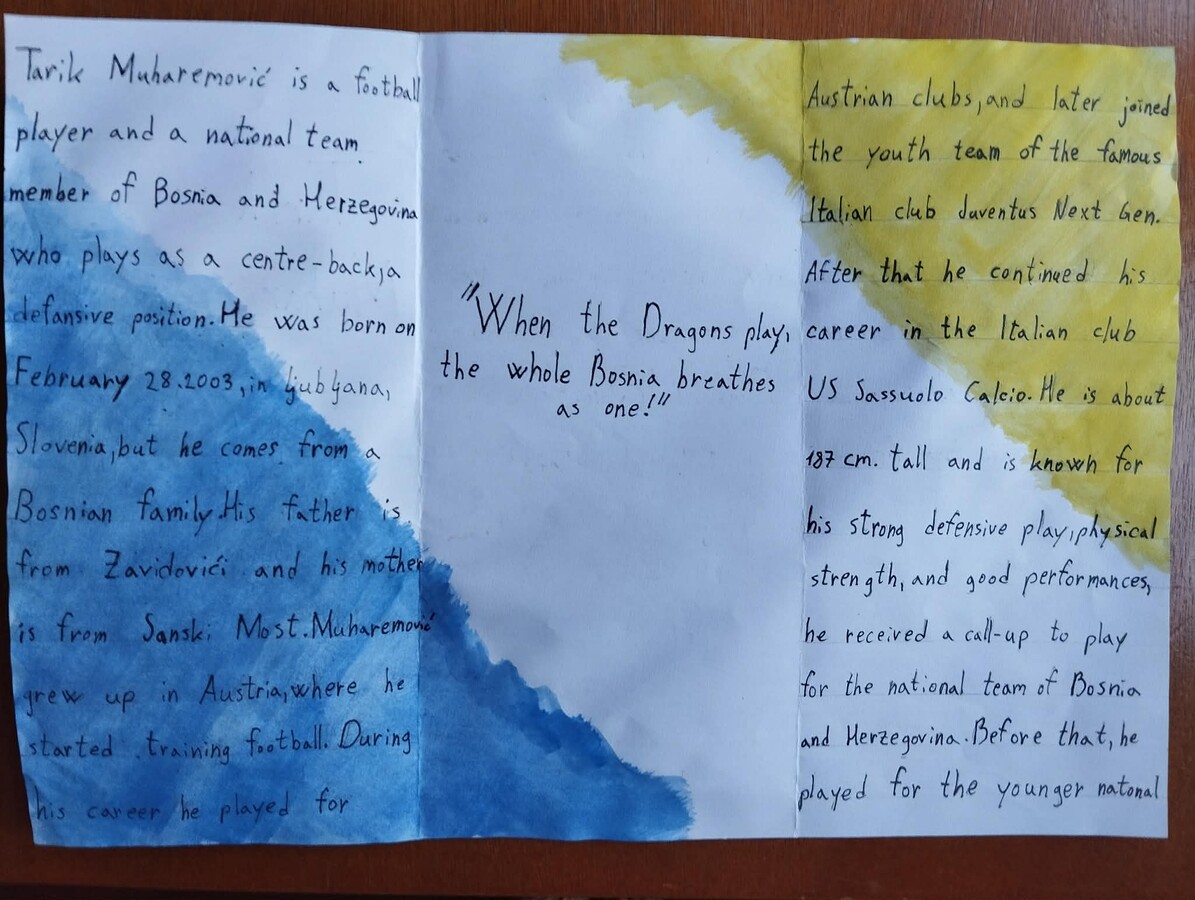 Tarik Muharemović is a football
player and a national team
member of Bosnia and Herzegovina
who plays as a centre-back,a
defansive position.He was born on
February 28.2003,in Ljubljana,
Slovenia,but he comes from a
Bosnian family.His father is
from Zavidovići and his mother
is from Sanski Most.Muharemović
grew up in Austria,where he
started training football. During
his career he played for
"When the Dragons play,
the whole Bosnia breathes
as one!"
Austrian clubs,and later joined
the youth team of the famous
Italian club Juventus Next Gen.
After that he continued his
career in the Italian club
US Sassuolo Calcio.He is about
187 cm. tall and is known for
his strong defensive play,physical
strength, and good performances,
he received a call-up to play
for the national team of Bosnia
and Herzegovina.Before that, he
played for the younger natonal